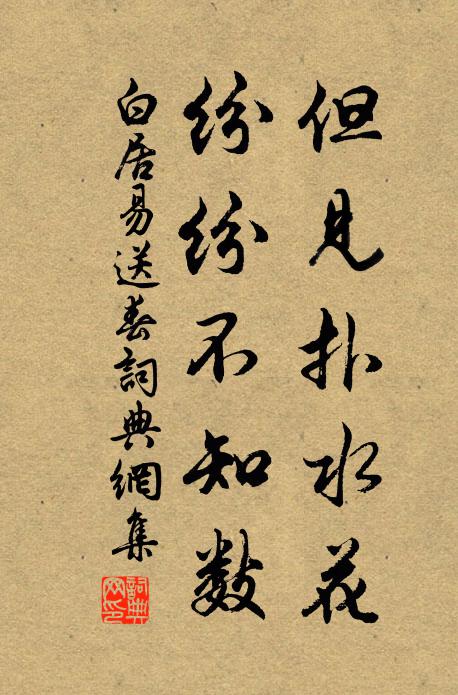 但見扑水花
紛紛不知數
白居易送春詞典網集
詞典网印